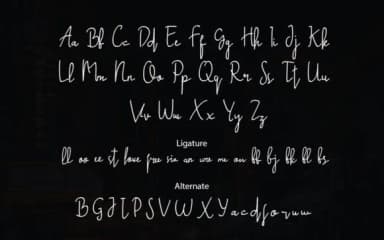 Aa Bb Cc Dd Ee Ff Gg Hh Ii Jj Kk
Ll Mm Nn Oo Pp Qq Rr Ss Tt Uu
Vv Ww Xx Yy Zz
Ligature
ll oo ee st love free sia an ure me on
Alternate
B G J I P S V W X Y a c d f o r u w